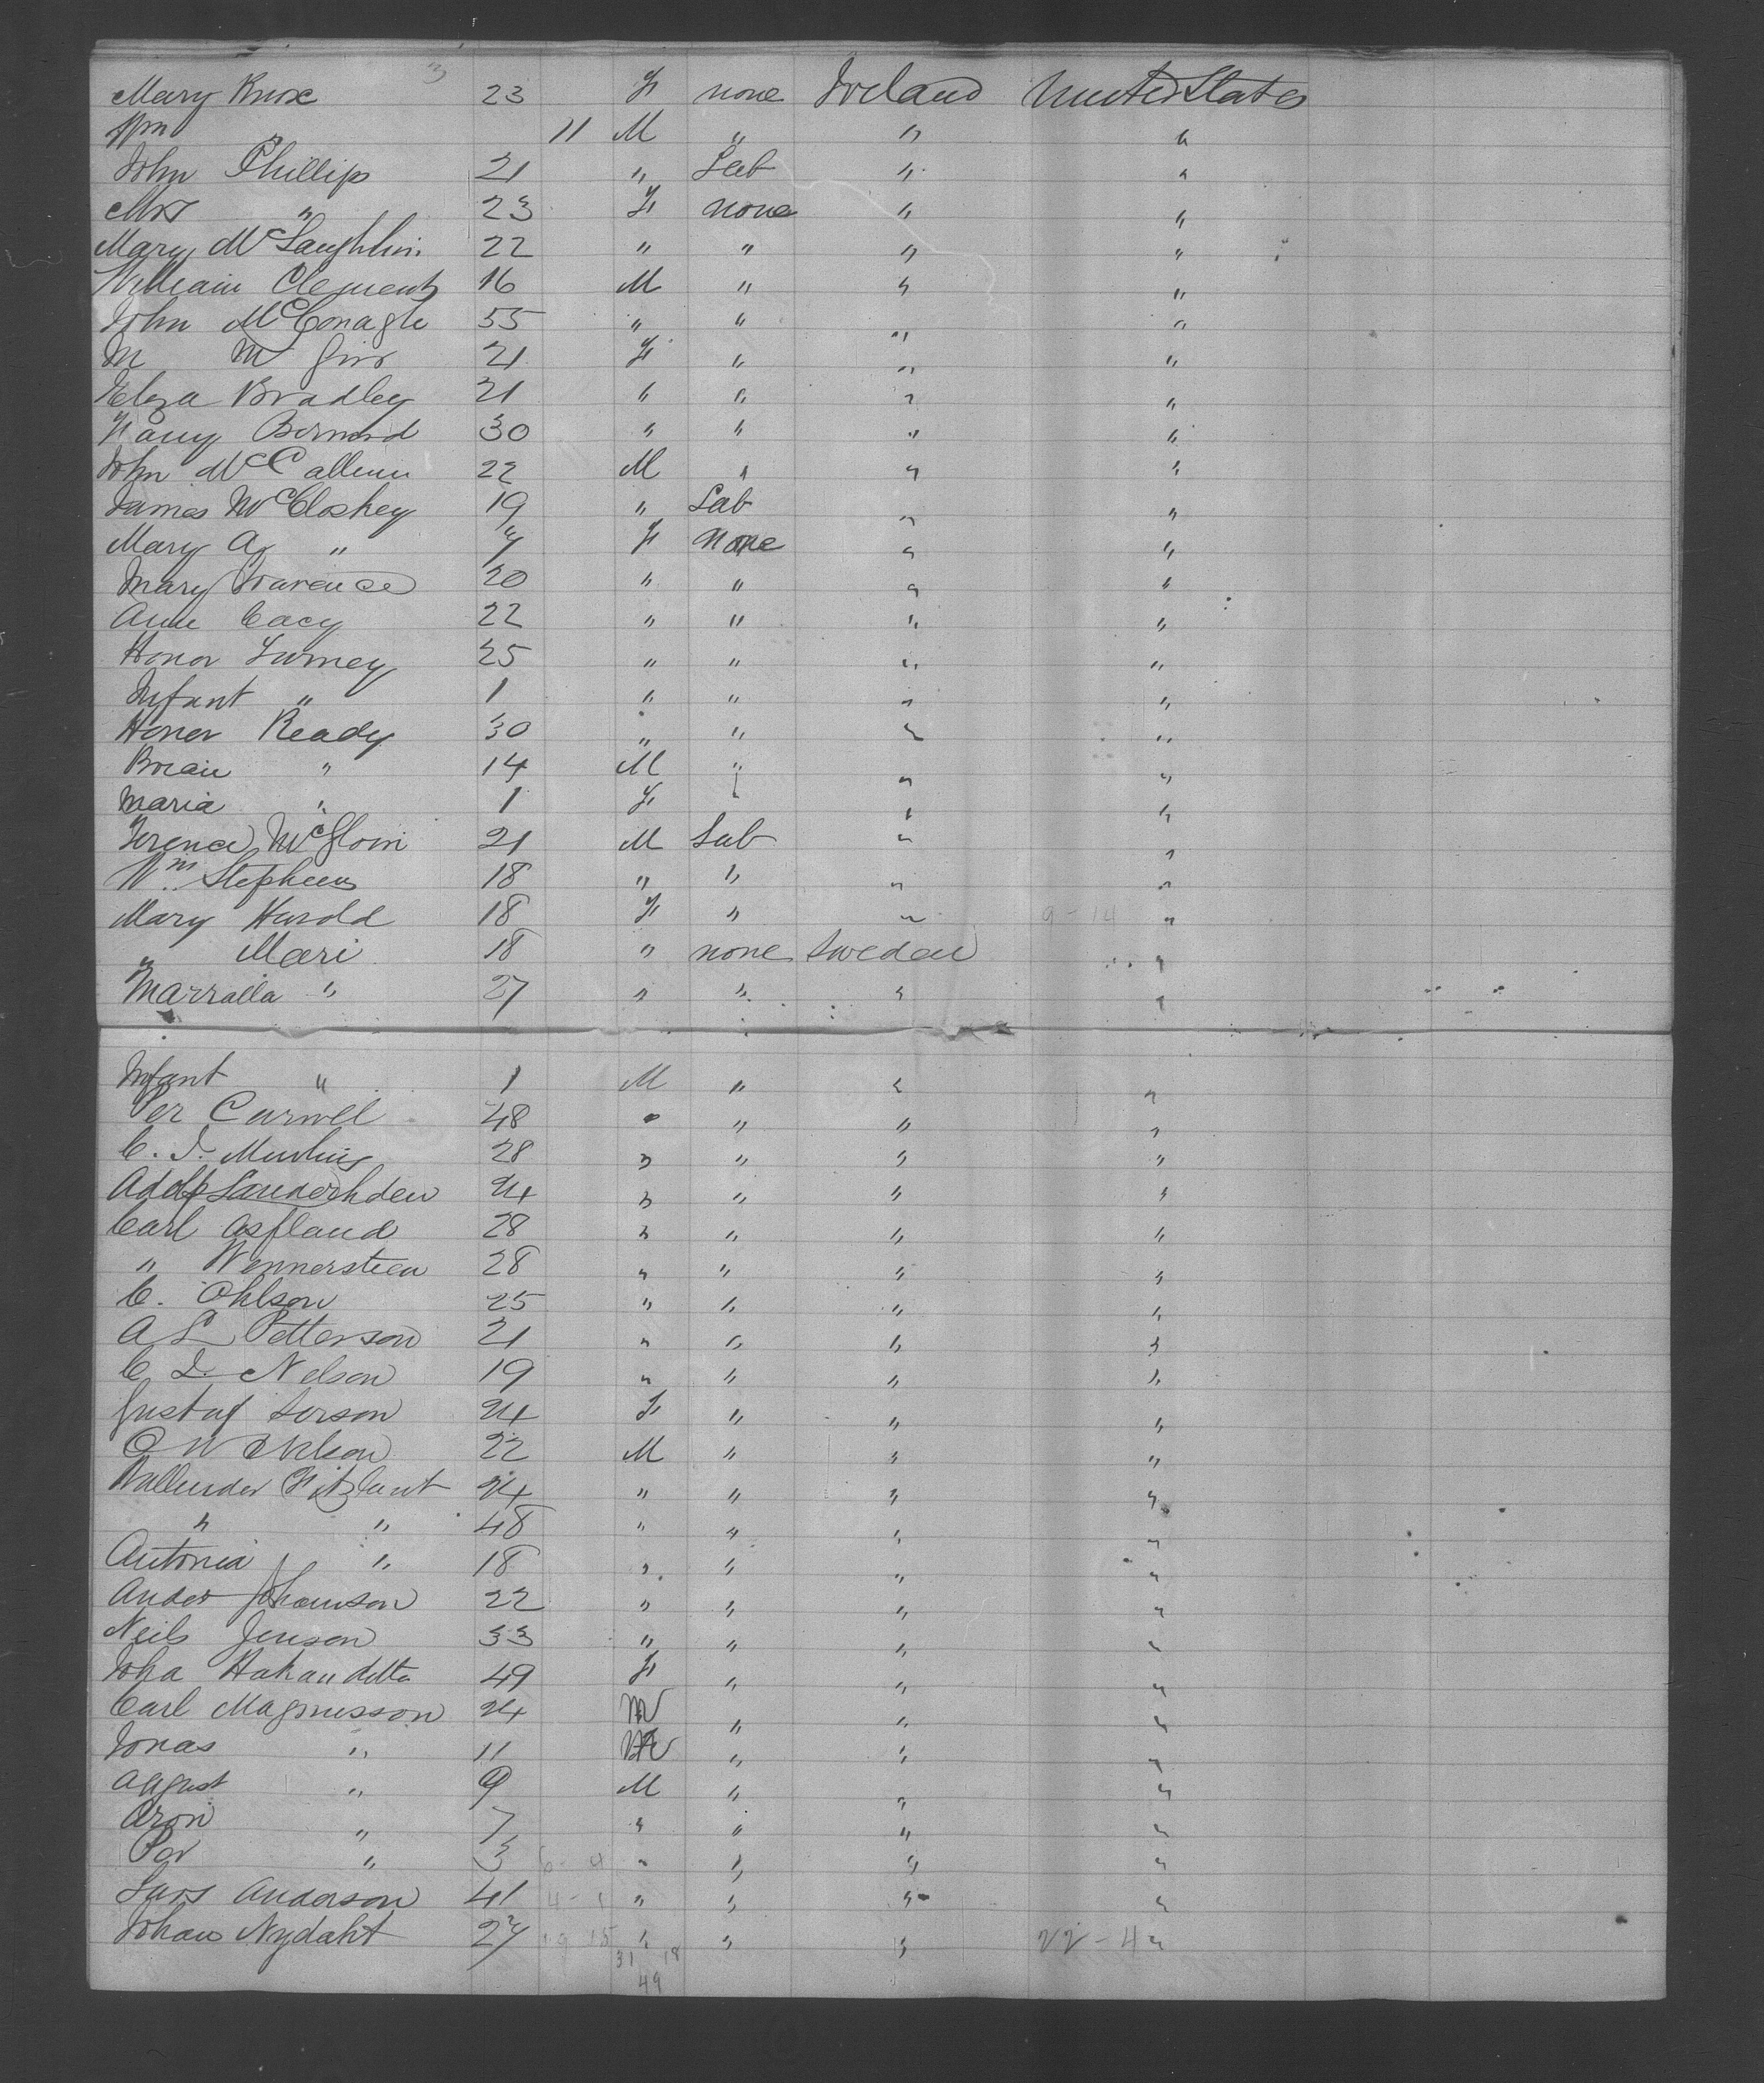 3
Mary Knox 23 F none Ireland United States
Wm 11 M " " "
John Phillips 21 " Lab " "
Mrs " 23 F none " "
Mary McLaughlin 22 " " " "
William Clements 16 M " " "
John McConagle 55 " " " "
M M 21 F " " "
Eliza Bradley 21 " " " "
Bernard 30 " " " "
John McCallum 22 M " " "
James McCloskey 19 " Lab " "
Mary A " 7 F none " "
Mary 20 " " " "
Ann Cacy 22 " " " "
Honor Turney 25 " " " "
Infant " 1 " " " "
Honor Ready 30 " " " "
Brian " 14 M " " "
Maria " 1 F " " "
Terence McGloin 21 M Lab " "
Wm Stephens 18 " " " "
Mary Harold 18 F " " 9-14 "
" Mari 18 " none Sweden "
Marralla " 27 " " " "
Infant " 1 M " " "
Per 48 " " " "
C. J. 28 " " " "
Adolf 24 " " " "
Carl Asfland 28 " " " "
" Wennersteen 28 " " " "
C. Ohlson 25 " " " "
A L Petterson 21 " " " "
C I Nelson 19 " " " "
Gustaf Lerson 24 F " " "
O W 22 M " " "
24 " " " "
" " 48 " " " "
Antonia " 18 " " " "
Ander Johanson 22 " " " "
Neils Jenson 33 " " " "
Joha 49 F " " "
Carl Magnusson 24 M " " "
Jonas " 11 M " " "
August " 9 M " " "
Aron " 7 " " " "
Per " 3 6-4 " " " "
Lars Anderson 41 4-1 " " " "
Johan Nydaht 27 19 15 " " " 22-4 "
31 18
49